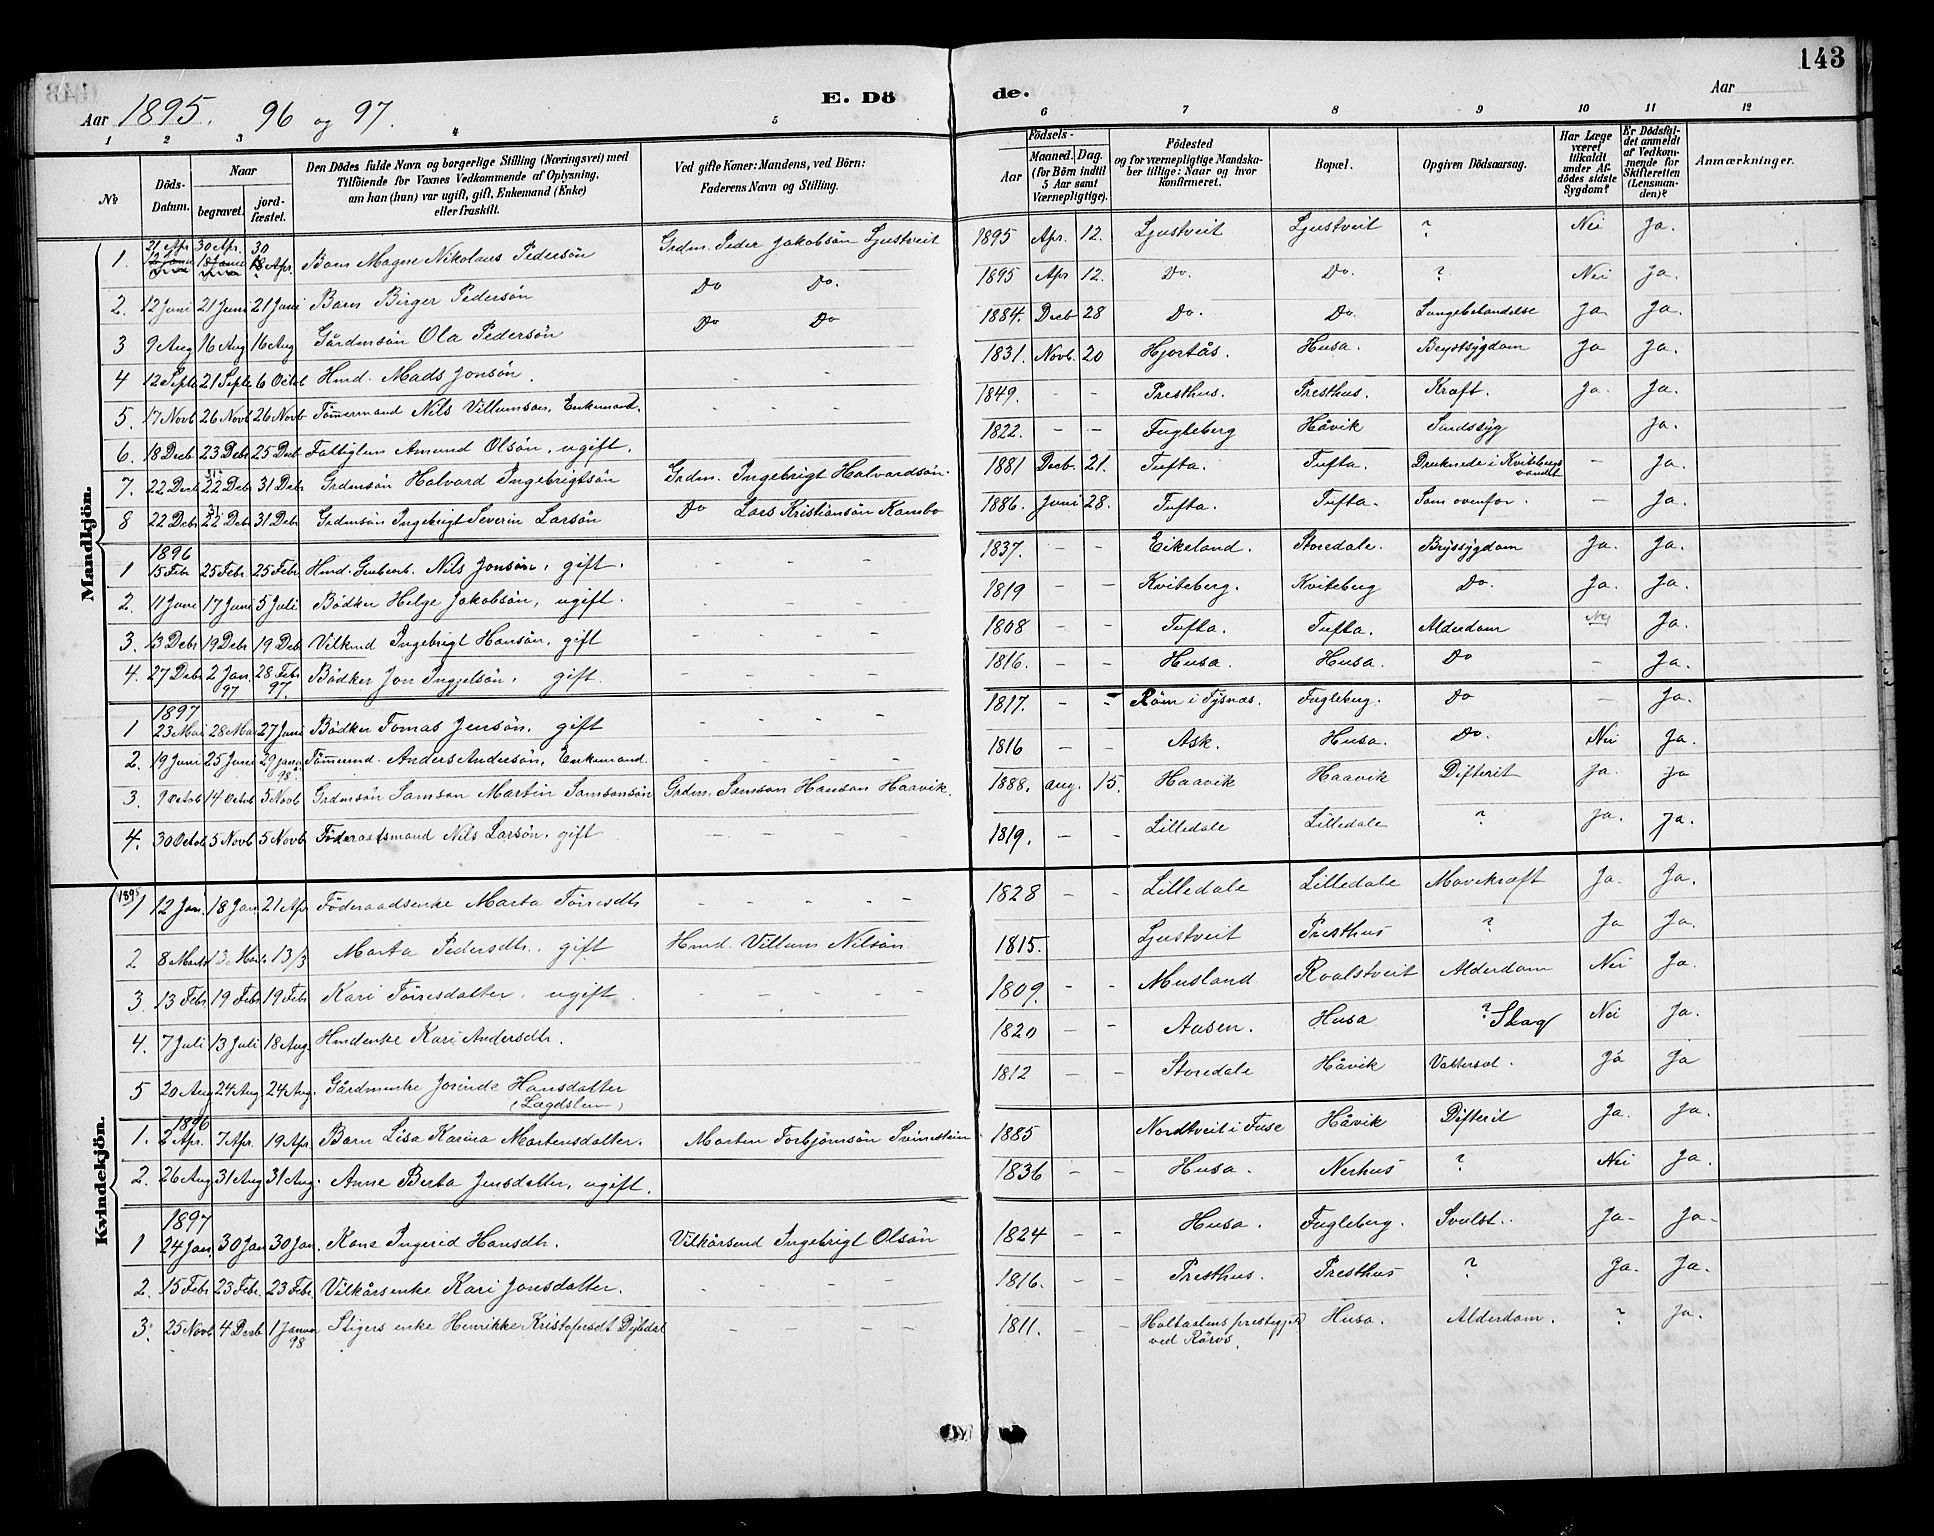 143
Aar 1895. 96 og 97.
E. Dö de.
Aar
1 2 3 4 5 6 7 8 9 10 11 12
№
Döds-Datum.
Naar
begravet.
jord-fæstet.
Den Dödes fulde Navn og borgerlige Stilling (Næringsvei) med
Tilföiende for Voxnes Vedkommende af Oplysning,
om han (hun) var ugift, gift, Enkemand (Enke)
eller fraskilt.
Ved gifte Koner: Mandens, ved Börn:
Faderens Navn og Stilling.
Födsels-
Aar
Maaned. Dag.
(for Börn indtil
5 Aar samt
Værnepligtige).
Födested
og for værnepligtige Mandska-
ber tillige: Naar og hvor
Konfirmeret.
Bopæl.
Opgiven Dödsaarsag.
Har Læge
været
tilkaldt
under Af-
dödes sidste
Sygdom?
Er Dödsfal-
det anmeldt
af Vedkom-
mende for
Skifteretten
(Lensman-
den)?
Anmærkninger.
Mandkjön.
1. 21 Apr 30 Apr. 30 Apr. Barn Magne Nikolaus Pedersön Grdm. Peder Jakobsön Ljustveit 1895 Apr. 12. Ljustveit Ljustveit ? Nei Ja.
2. 12 Juni 21 Juni 21 Juni Barn Birger Pedersön Do Do. 1895 Apr 12. Do. Do. ? Nei Ja.
3 9 Aug 16 Aug 16 Aug Gårdmsön Ola Pedersön Do Do 1884. Decb 28 Do. Do. Lungebetændelse Ja Ja.
4 12 Septb 21 Septb 6 Octob Hmd. Mads Jonsön. - - 1831. Novb. 20 Hjortås. Husa. Brystsygdom Ja Ja.
5. 17 Novb 26 Novb 26 Novb Tömmermand Nils Villumson, Enkemand. - - - 1849. - - Presthus. Presthus. Kræft. Ja. Ja.
6. 18 Decb 23 Debr 25 Decb Fattiglem Amund Olsön, ugift. 1822. - - Fugleberg Håvik Sindssyg Ja.
7. 22 Decb 31 22 Deb 31 Debr Grdmsön Halvard Ingebrigtsön Grdm. Ingebrigt Halvardsön. 1881 Decb. 21. Tufta. Tufta. Druknede i Kvitebergs vandet - Ja.
8 22 Debr 31 22 Deb 31 Debr Grdmsön Ingebrigt Severin Larsön Do Lars Kristiansön Kambo 1886. Juni 28. Tufta. Tufta. Som ovenfor. - Ja.
1896
1 15 Febr 25 Febr. 25 Febr. Hmd. Grubearb. Nils Jonsön, gift. - - - 1837. - - Eikeland. Storedale. Bryssygdom Ja. Ja.
2. 11 Juni 17 Juni 5 Juli Bödker Helge Jakobsön, ugift. - - - 1819 - - Kviteberg. Kviteberg Do. Ja. Ja.
3. 13 Debr 19 Debr 19 Deb Vilkmd Ingebrigt Hansön, gift - - - - 1808 - - Tufta. Tufta. Alderdom Nei Ja.
4. 27 Debr 2 Jan. 97 28 Febr 97 Bödker Jon Inggjelsön, gift. - - - - 1816. - - Husa. Husa. Do - Ja.
1897
1 23 Mai 28 Mai 27 Juni Bödker Tomas Jensön, gift - - - - 1817. - - Röm i Tysnæs. Fugleberg. Do - Ja.
2. 19 Juni 25 Juni 29 Janu 98 Tömmermd. Anders Andersön, Enkemand. - - - - 1816 - - Ask. Husa. Do. Nei Ja.
3. 9 Octob 14 Octob 5 Novb Grdmsön Samson Martin Samsonsön Grdm. Samson Hanson Haavik. 1888. Aug. 15. Haavik Haavik Difterit Ja. Ja
4. 30 Octob 5 Novb 5 Novb Föderaadsmand Nils Larsön, gift - - - - 1819. - - Lilledale Lilledale ? Ja. Ja.
Kvindekjön.
1895
1 12 Jan. 18 Jan 21 Apr Föderaadsenke Marta Törresdtr - - - - - 1828 - - Lilledale Lilledale Mavekræft Ja. Ja.
2 8 Marts 13. Mart. 13/3 Marta Pedersdtr. gift Hmd. Villum Nilsön 1815. Ljustveit Presthus ? Ja Ja.
3. 13 Febr 19 Febr 19 Febr Kari Törresdatter, ugift - - - - 1809. - - Musland Roalstveit Alderdom Nei Ja.
4. 7 Juli 13 Juli 18 Aug. Hmdenke Kari Andersdtr. 1820 - - Aasen. Husa ? Slag Nei Ja.
5 20 Aug 24 Aug 24 Aug. Gårdmenke Jorinde Hansdatter 1812 - - Storedale Håvik Vattersot. Ja Ja
(Lægdslem)
1896
1. 2 Apr. 7 Apr. 19 Apr. Barn Lisa Karina Martensdatter. Marten Torbjörnsön Svinestein 1885 Nordtveit i Fuse Håvik Difterit Ja. Ja.
2. 26 Aug 31 Aug 31 Aug. Anne Berta Jensdatter, ugift. 1836 - - Husa. Nerhus ? Nei Ja.
1897
1 24 Jan. 30 Jan 30 Jan. Kone Ingerid Hansdtr. Vilkårsmd Ingebrigt Olsön 1824 - - Husa. Fugleberg. Svulst. Ja. Ja.
2. 15 Febr 23 Febr. 23 Febr. Vilkårsenke Kari Jonsdatter. - - - 1816. - - Presthus. Presthus ? Ja. Ja.
3. 25 Novb 4 Decb 1 Januar 98 Stigers enke Henrikke Kristofersdt Dejbdal - - - - 1811. - - Holtaalens prestegjeld Husa. Alderdom. ? Ja.
ved Röros.